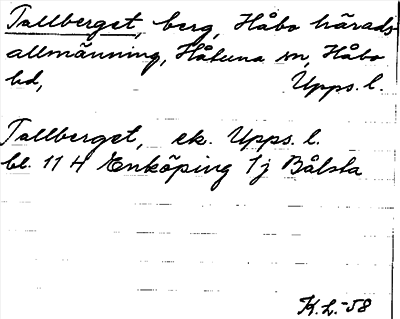 Tallberget, berg, Håbo härads-
allmänning, Håtuna sn, Håbo
hd, Upps. l.
Tallberget, ek. Upps. l.
bl. 114 Enköping 1j Bålsta
K.L.-58